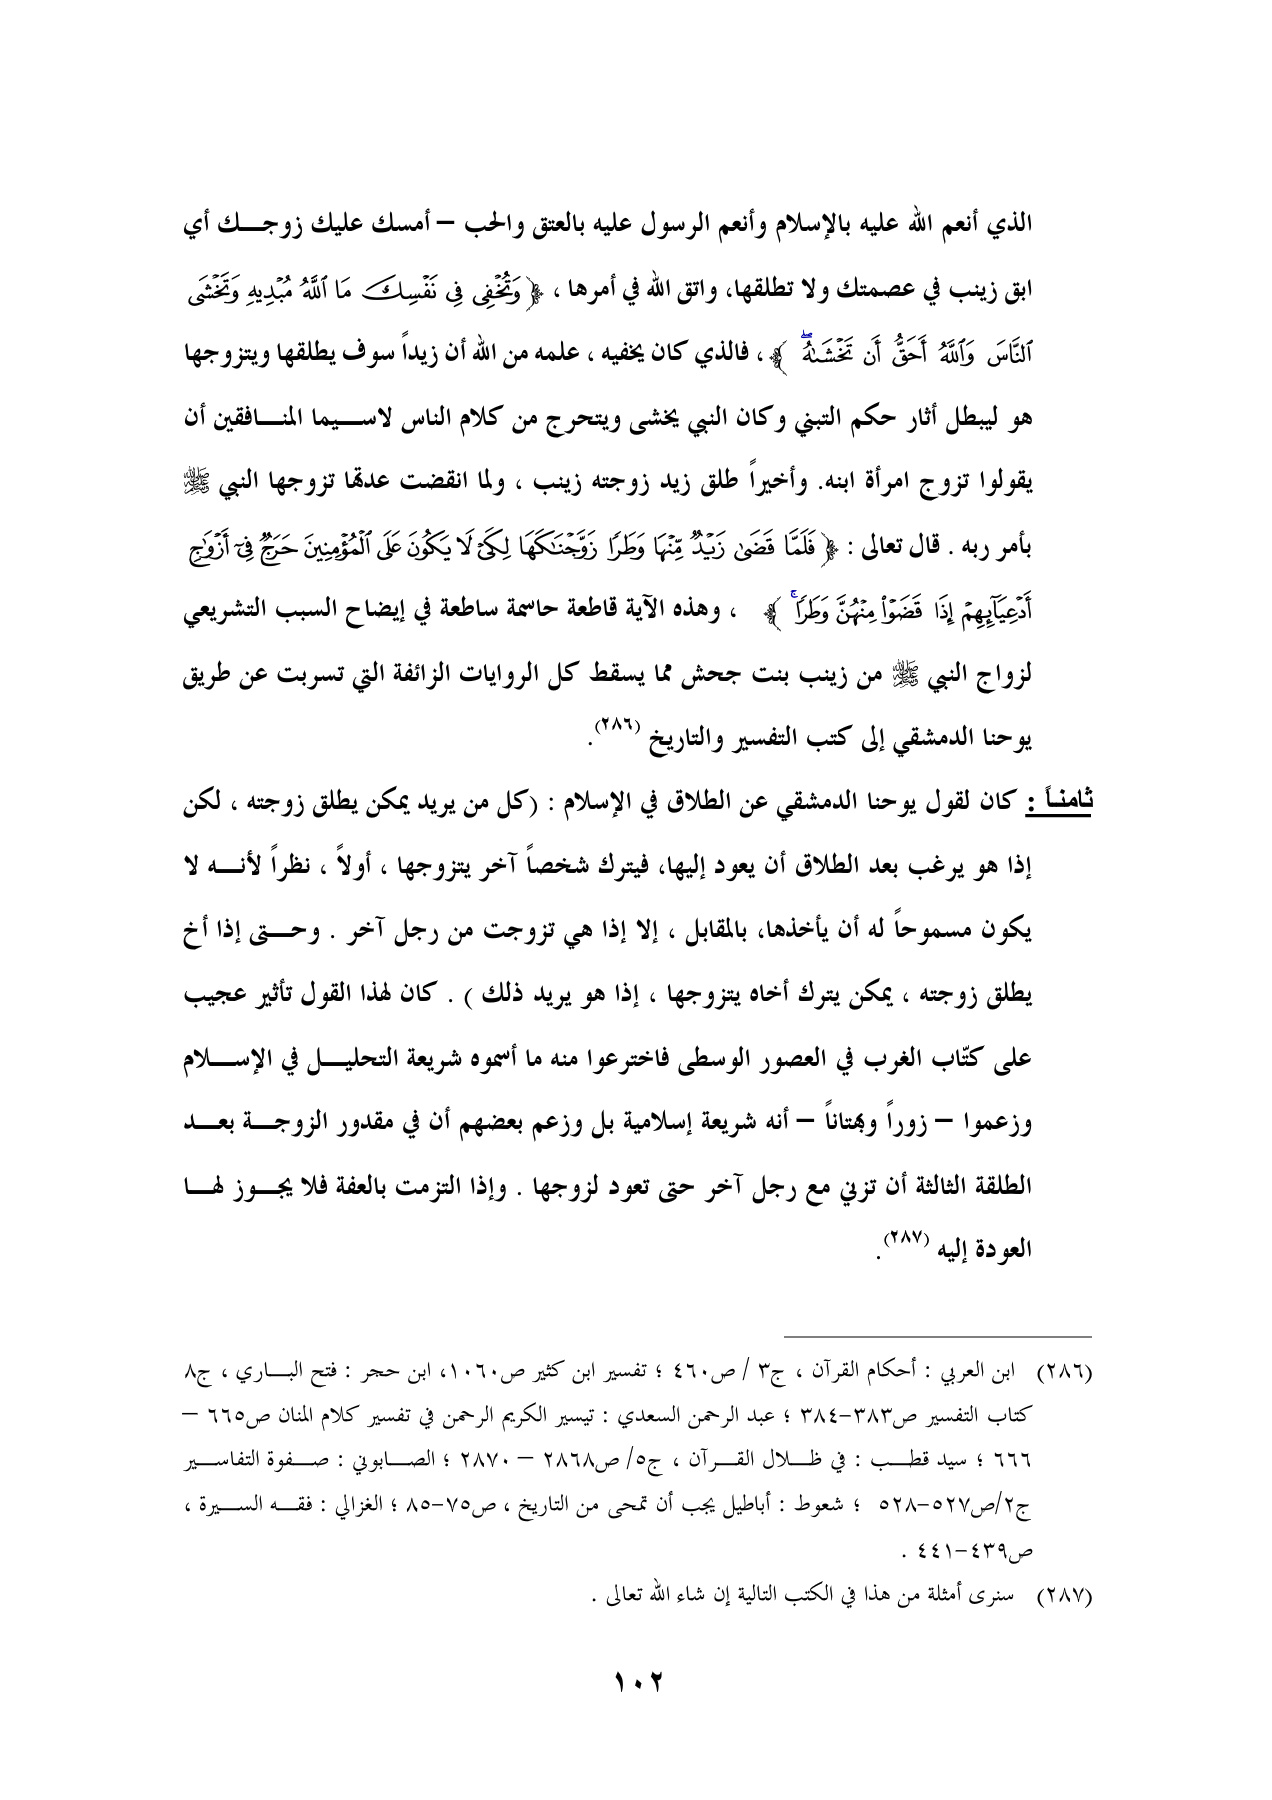 الذي أنعم الله عليه بالإسلام وأنعم الرسول عليه بالعتق والحب – أمسك عليك زوجك أي
ابق زينب في عصمتك ولا تطلقها، واتق الله في أمرها ، ﴿ وَتُخْفِى فِى نَفْسِكَ مَا ٱللَّهُ مُبْدِيهِ وَتَخْشَى
ٱلنَّاسَ وَٱللَّهُ أَحَقُّ أَن تَخْشَىٰهُ ۖ ﴾ ، فالذي كان يخفيه ، علمه من الله أن زيداً سوف يطلقها ويتزوجها
هو ليبطل أثار حكم التبني وكان النبي يخشى ويتحرج من كلام الناس لاسيما المنافقين أن
يقولوا تزوج امرأة ابنه. وأخيراً طلق زيد زوجته زينب ، ولما انقضت عدتها تزوجها النبي ﷺ
بأمر ربه . قال تعالى : ﴿ فَلَمَّا قَضَىٰ زَيْدٌ مِّنْهَا وَطَرًا زَوَّجْنَٰكَهَا لِكَىْ لَا يَكُونَ عَلَى ٱلْمُؤْمِنِينَ حَرَجٌ فِىٓ أَزْوَٰجِ
أَدْعِيَآئِهِمْ إِذَا قَضَوْا۟ مِنْهُنَّ وَطَرًا ۚ ﴾ ، وهذه الآية قاطعة حاسمة ساطعة في إيضاح السبب التشريعي
لزواج النبي ﷺ من زينب بنت جحش مما يسقط كل الروايات الزائفة التي تسربت عن طريق
يوحنا الدمشقي إلى كتب التفسير والتاريخ (٢٨٦).
ثامناً : كان لقول يوحنا الدمشقي عن الطلاق في الإسلام : (كل من يريد يمكن يطلق زوجته ، لكن
إذا هو يرغب بعد الطلاق أن يعود إليها، فيترك شخصاً آخر يتزوجها ، أولاً ، نظراً لأنه لا
يكون مسموحاً له أن يأخذها، بالمقابل ، إلا إذا هي تزوجت من رجل آخر . وحتى إذا أخ
يطلق زوجته ، يمكن يترك أخاه يتزوجها ، إذا هو يريد ذلك ) . كان لهذا القول تأثير عجيب
على كتّاب الغرب في العصور الوسطى فاخترعوا منه ما أسموه شريعة التحليل في الإسلام
وزعموا – زوراً وبهتاناً – أنه شريعة إسلامية بل وزعم بعضهم أن في مقدور الزوجة بعد
الطلقة الثالثة أن تزني مع رجل آخر حتى تعود لزوجها . وإذا التزمت بالعفة فلا يجوز لها
العودة إليه (٢٨٧).
(٢٨٦) ابن العربي : أحكام القرآن ، ج٣ / ص٤٦٠ ؛ تفسير ابن كثير ص١٠٦٠، ابن حجر : فتح الباري ، ج٨
كتاب التفسير ص٣٨٣–٣٨٤ ؛ عبد الرحمن السعدي : تيسير الكريم الرحمن في تفسير كلام المنان ص٦٦٥ –
٦٦٦ ؛ سيد قطب : في ظلال القرآن ، ج٥/ ص٢٨٦٨ – ٢٨٧٠ ؛ الصابوني : صفوة التفاسير
ج٢/ص٥٢٧–٥٢٨ ؛ شعوط : أباطيل يجب أن تمحى من التاريخ ، ص٧٥–٨٥ ؛ الغزالي : فقه السيرة ،
ص٤٣٩–٤٤١ .
(٢٨٧) سنرى أمثلة من هذا في الكتب التالية إن شاء الله تعالى .
١٠٢